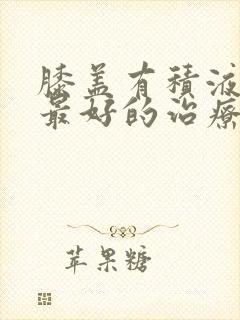 膝盖有积液
最好的治疗
苹果糖